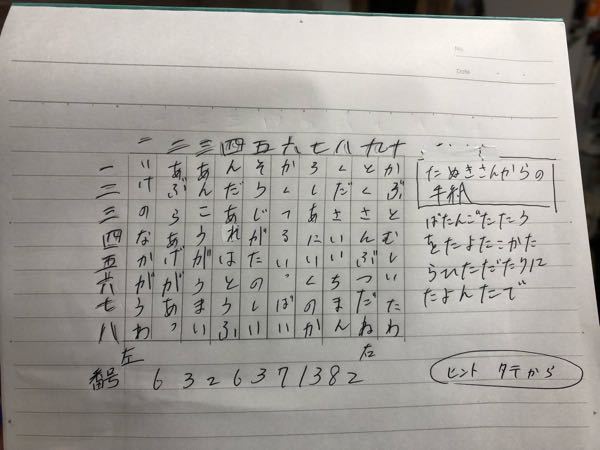 No.
Date
一 二 三 四 五 六 七 八 九 十
一 い あ あ ん そ か ろ く と か
二 け ぶ ん だ ら く し だ く ぶ
三 の ら こ あ じ っ あ さ さ と
四 な あ う れ が る に い ん む
五 か げ が は た い い い ぶ し
六 が が う と の 、 く ち つ い
七 う あ ま う し ば の ま だ た
八 わ っ い ふ い い か ん ね わ
左 右
番号 6 3 2 6 3 7 1 3 8 2
たぬきさんからの
手紙
ばたんごたたら
をたよたこかた
らひただたりに
たよんたで
ヒント タテから